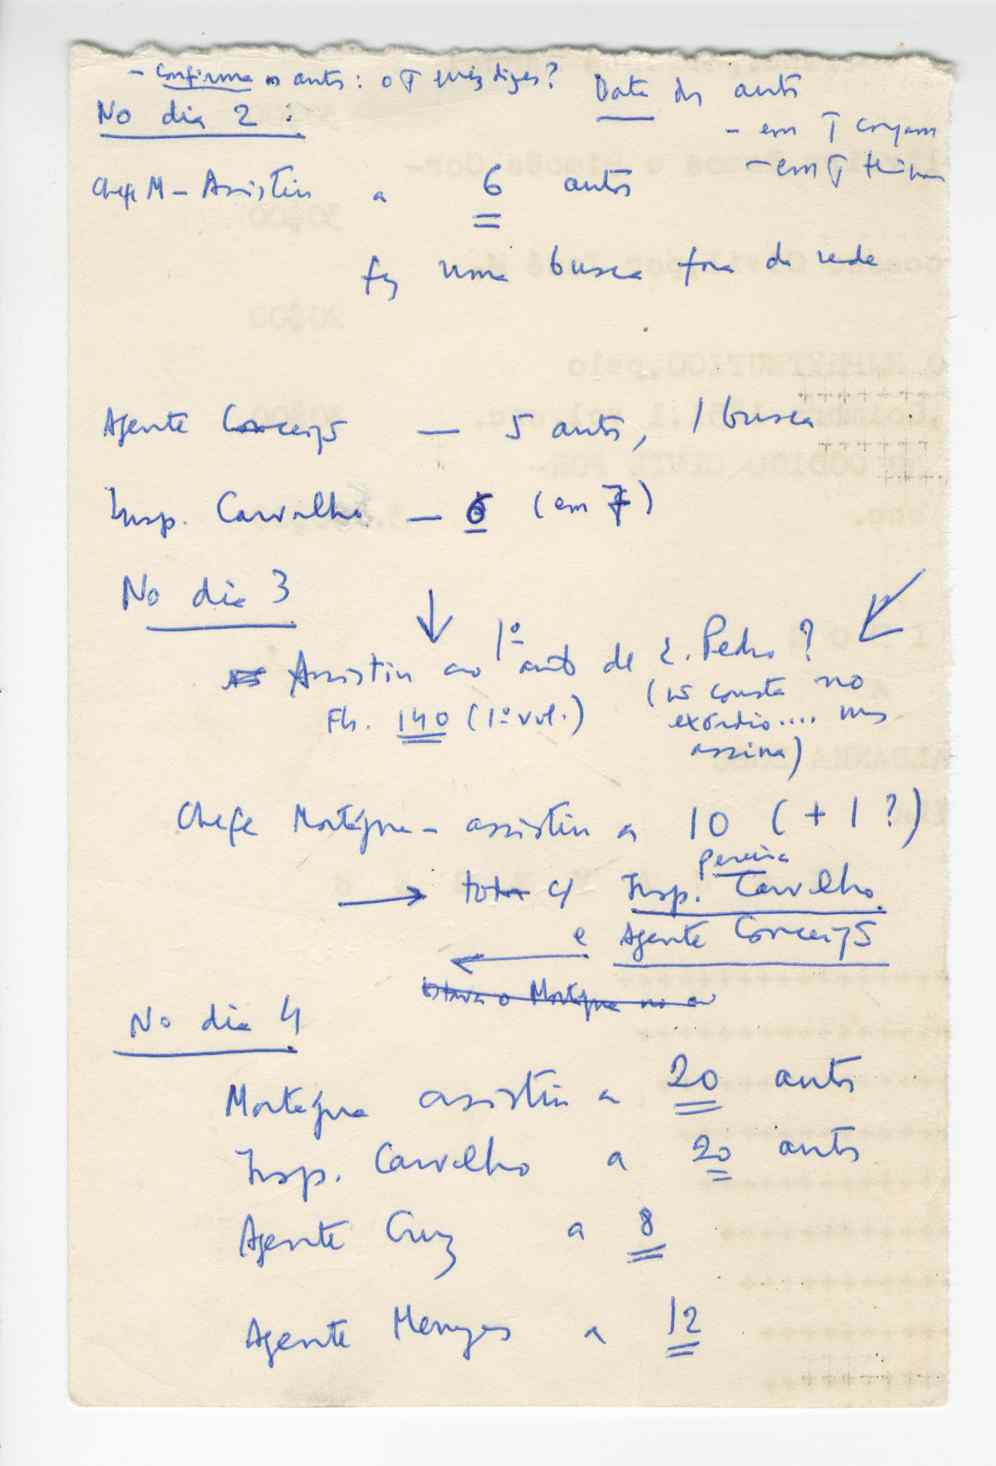 - Confirma os autos: o T diz? Data dos autos
- em T
No dia 2:
- em T
Chefe M - Assistiu a 6 autos
fez uma busca fora da sede
Agente Conceição — 5 autos, 1 busca
Insp. Carvalho — 6 (em 7)
No dia 3
Assistiu ao 1º auto de Z. Pedro?
Fls. 140 (1º vol.)
(ñ consta no
exórdio.... mas
assina)
Chefe Mortágua - assistiu a 10 (+ 1?)
Pereira
→ c/ Insp. Carvalho
e Agente Conceição
No dia 4
Mortágua assistiu a 20 autos
Insp. Carvalho a 20 autos
Agente Cruz a 8
Agente Menezes a 12